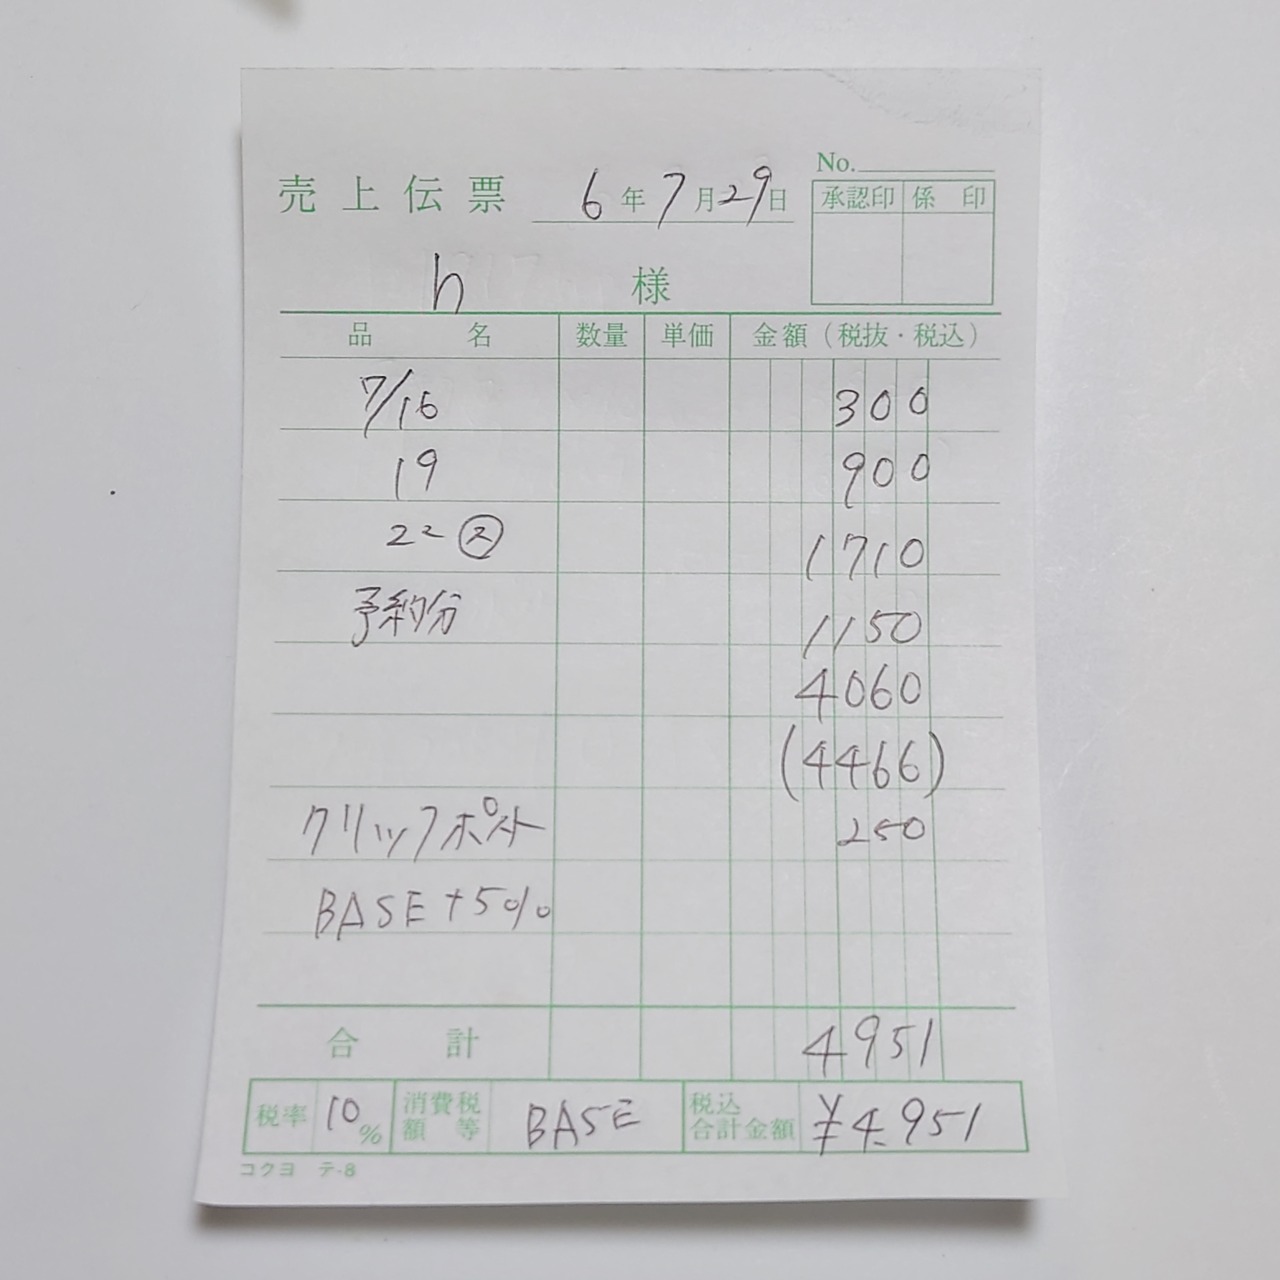 No.
売上伝票 6年7月29日
承認印 係印
h 様
品名 数量 単価 金額(税抜・税込)
7/16 300
19 900
22 ㋜ 1710
予約分 1150
4060
(4466)
クリックポスト 250
BASE+5%
合計 4951
税率 10% 消費税額等 BASE 税込合計金額 ¥4,951
コクヨ テ-8